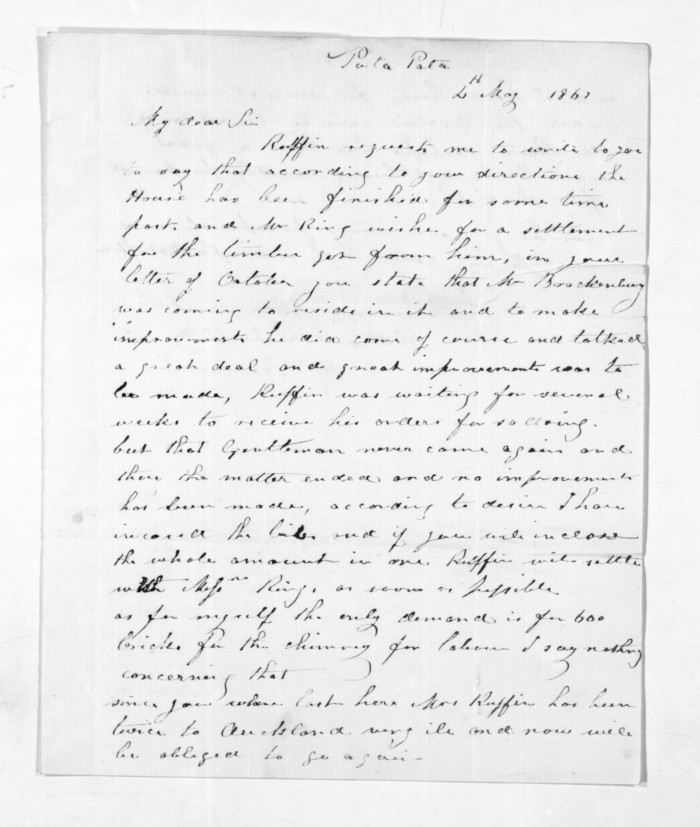 Puta Pata
2th May 1863
My dear Sir
Ruffin requests me to write to you
to say that according to your directions the
House has been finished for some time
past. and Mr Ring wishes for a settlement
for the timber got from him, in your
letter of October you state that Mr Brackenbury
was coming to reside in it and to make
improvements he did come of course and talked
a great deal and great improvements was to
be made, Ruffin was waiting for several
weeks to receive his orders for so doing.
but that Gentleman never came again and
there the matter ended and no improvements
has been made, according to desire I have
incosed the bills and if you will inclose
the whole amount in one Ruffin will settle
with Messrs Ring, as soon as possible
as for myself the only demand is for 600
bricks for the chimney for labour I say nothing
concerning that
since you where last here Mrs Ruffin has been
twice to Auckland very ile and now will
be obleged to go again -